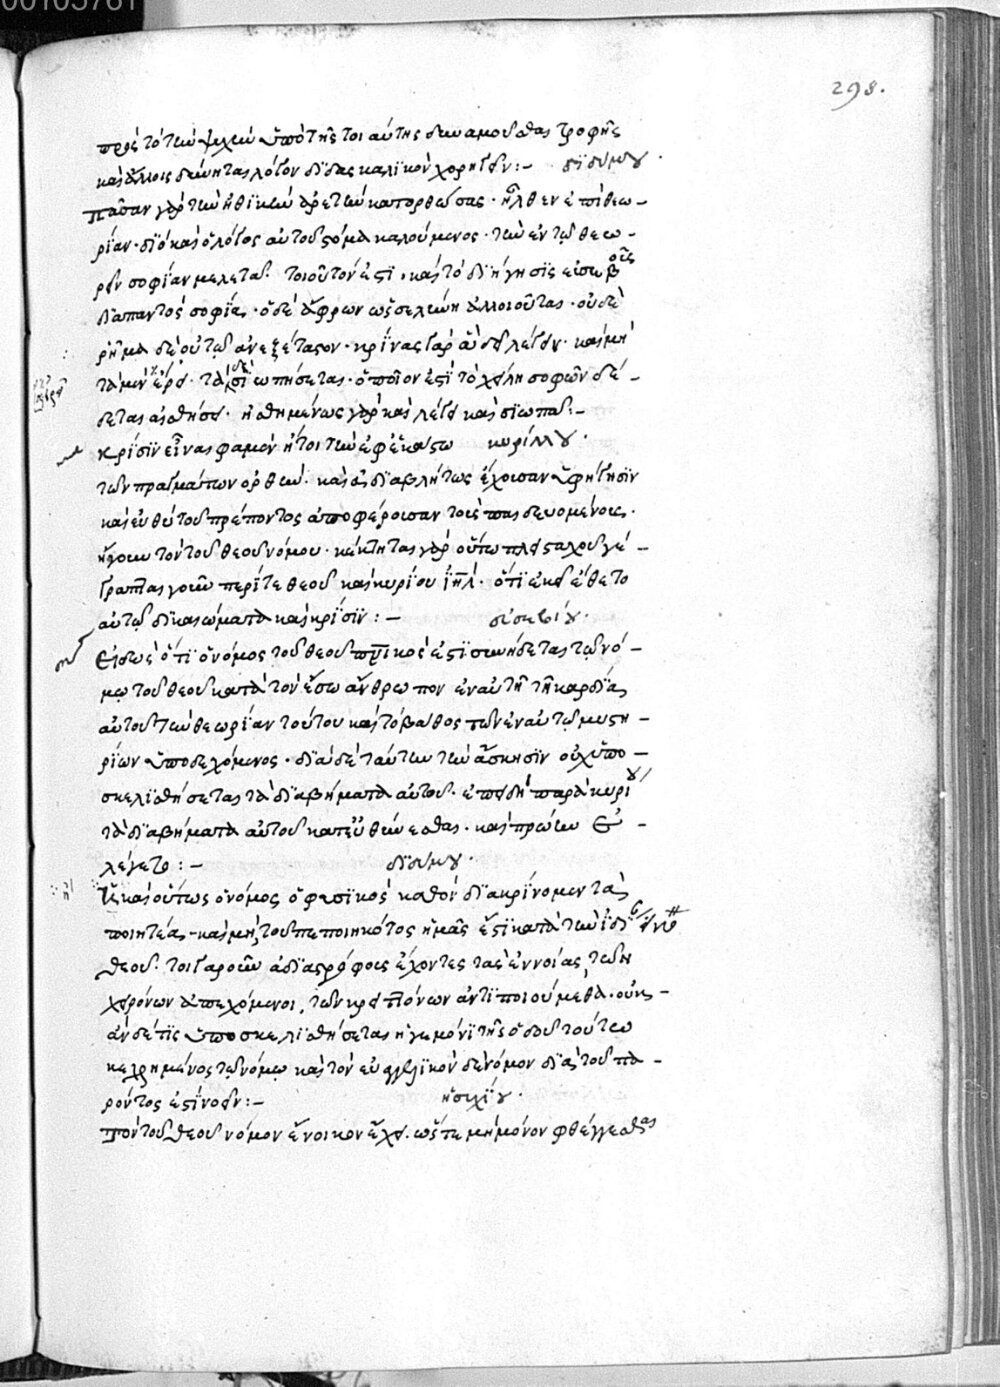 00105761
298.
πρὸς τὸ τὴν ψυχὴν ὑπὸ τῆς τοιαύτης δυναμοῦσθαι τροφῆς
καὶ ἄλλοις δύνηται λόγον διδόναι καὶ ἱκανὸν χορηγεῖν:– διδύμου.
Πᾶσαν γὰρ τὴν ἠθικὴν ἀρετὴν κατορθώσας. ἦλθεν ἐπὶ θεω–
ρίαν. διὸ καὶ ὁ λόγος αὐτοῦ στόμα καλούμενος. τὴν ἐν τῷ θεω–
ρεῖν σοφίαν μελετᾷ. τοιοῦτόν ἐστι. καὶ τὸ διήγησις εὐσεβοῦς
διαπαντὸς σοφία. ὁ δὲ ἄφρων ὡς σελήνη ἀλλοιοῦται. οὐδὲ
ῥῆμα δὲ οὕτω ἀνεξέταστον. κρίνας γὰρ ἃ δεῖ λέγειν. καὶ μὴ
τὰ μὲν ἐρεῖ. τὰ δὲ σιωπήσεται. ὁποῖον ἐστὶ τὸ χείλη σοφῶν δέ–
δεται αἰσθήσει. ᾐσθημένως γὰρ καὶ λέγει καὶ σιωπᾷ:–
Κρίσιν εἶναι φαμὲν ἤτοι τὴν ἐφ' ἑκάστω κυρίλλου.
τῶν πραγμάτων ὀρθὴν. καὶ ἀδιαβλήτως ἔχουσαν ὑφήγησιν
καὶ εὐθὺ τοῦ πρέποντος ἀποφέρουσαν τοὺς παιδευομένους.
ἤγουν τὸν τοῦ θεοῦ νόμον. κέκληται γὰρ οὕτω πλεισταχοῦ γέ–
γραπται γοῦν περί τε θεοῦ καὶ κυρίου ἰηλ. ὅτι ἐκεῖ ἔθετο
αὐτῷ δικαιώματα καὶ κρίσιν:– εὐσεβίου.
Εἰδὼς ὅτι ὁ νόμος τοῦ θεοῦ πνικός ἐστι συνήδεται τῷ νό–
μω τοῦ θεοῦ κατὰ τὸν ἔσω ἄνθρωπον ἐν αὐτῇ τῇ καρδίᾳ
αὐτοῦ τὴν θεωρίαν τούτου καὶ τὸ βάθος τῶν ἐν αὐτῷ μυστη–
ρίων ὑποδεχόμενος. διὰ δὲ ταύτην τὴν ἄσκησιν οὐχ ὑπο–
σκελισθήσεται τὰ διαβήματα αὐτοῦ. ἐπειδὴ παρὰ κυρίου
τὰ διαβήματα αὐτοῦ κατευθύνεσθαι. καὶ πρώτην ἐ–
λέγετο:– διδύμου.
Ἔτι καὶ οὕτως ὁ νόμος ὁ φυσικὸς καθ' ὃν διακρίνομεν τὰ
ποιητέα. καὶ μὴ, τοῦ πεποιηκότος ἡμᾶς ἐστὶ κατὰ τὴν
θεοῦ. τοιγαροῦν ἀδιαστρόφους ἔχοντες τὰς ἐννοίας, τῶν
χειρόνων ἀπεχόμενοι, τῶν κρειττόνων ἀντιποιούμεθα. οὐκ–
ἂν δέ τις ὑποσκελισθήσεται ἡγεμόνι τῆς ὁδοῦ τούτω
κεχρημένος τῷ νόμῳ καὶ τὸν εὐαγγελικὸν δὲ νόμον διὰ τοῦ πα–
ρόντος ἐστὶ νοεῖν:– ἡσυχίου.
Τὸν τοῦ θεοῦ νόμον ἔνοικον ἔχει. ὥστε μὴ μόνον φθέγγεσθαι